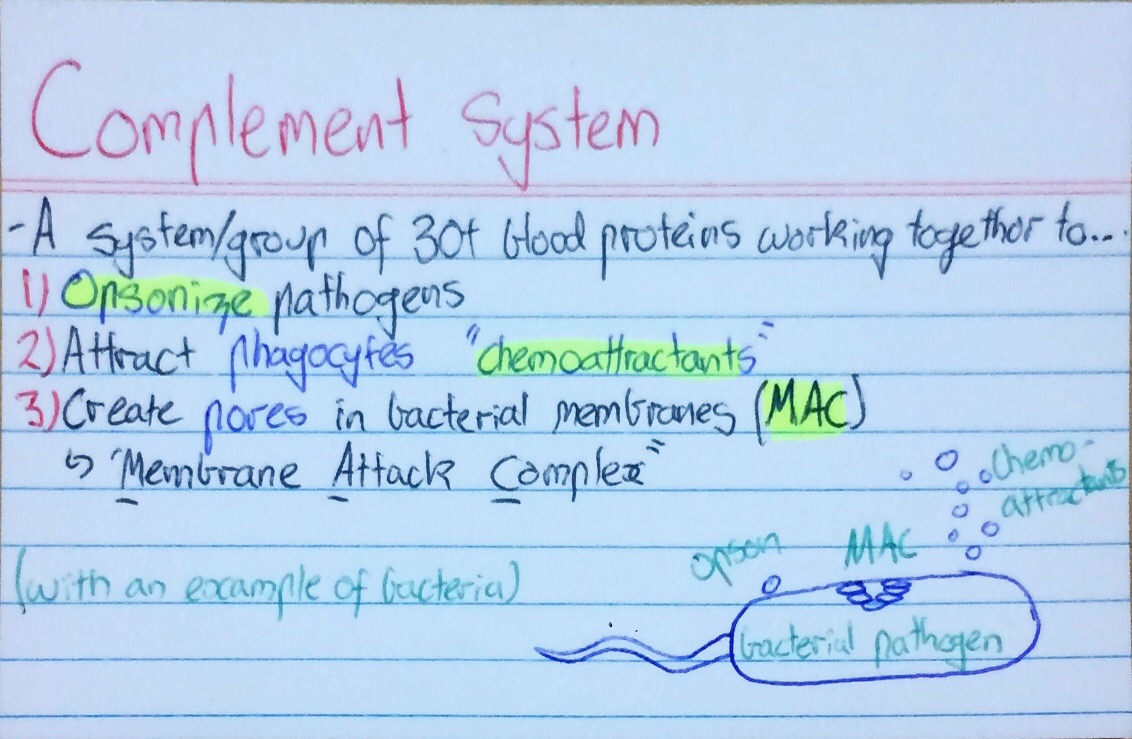 Complement System
-A system/group of 30+ blood proteins working together to...
1) Opsonize pathogens
2) Attract phagocytes "chemoattractants"
3) Create pores in bacterial membranes (MAC)
↳ "Membrane Attack Complex"
(with an example of bacteria)
opson
MAC
Chemo-
attractants
bacterial pathogen